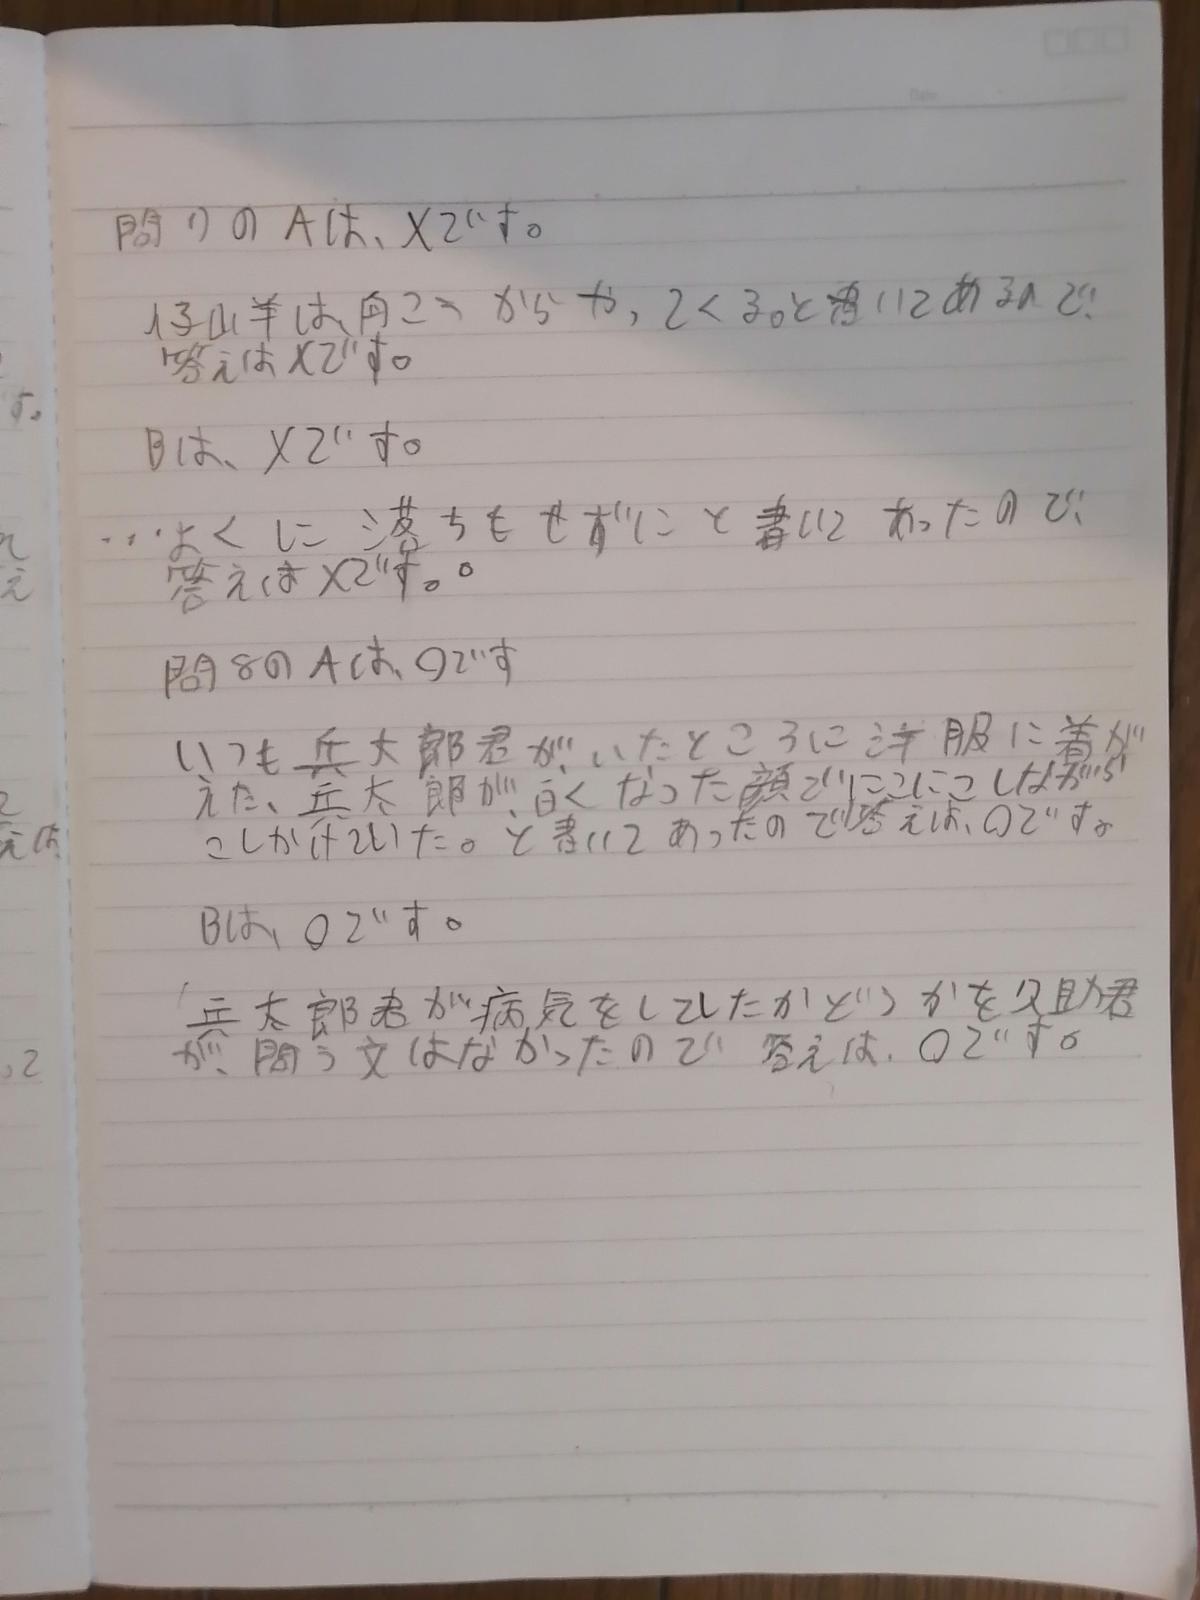 問7のAは、Xです。
仔山羊は、向こうからやってくる。と書いてあるので、
答えはXです。
Bは、Xです。
…よくに落ちもせずにと書いてあったので、
答えはXです。。
問8のAは、〇です
いつも兵太郎君が、いたところに洋服に着が
えた、兵太郎が、白くなった顔でにこにこしながら
こしかけていた。と書いてあったので答えは、〇です。
Bは、〇です。
兵太郎君が病気をしてしたかどうかを久助君
が、問う文はなかったので答えは、〇です。
す。
て
え
えは
って